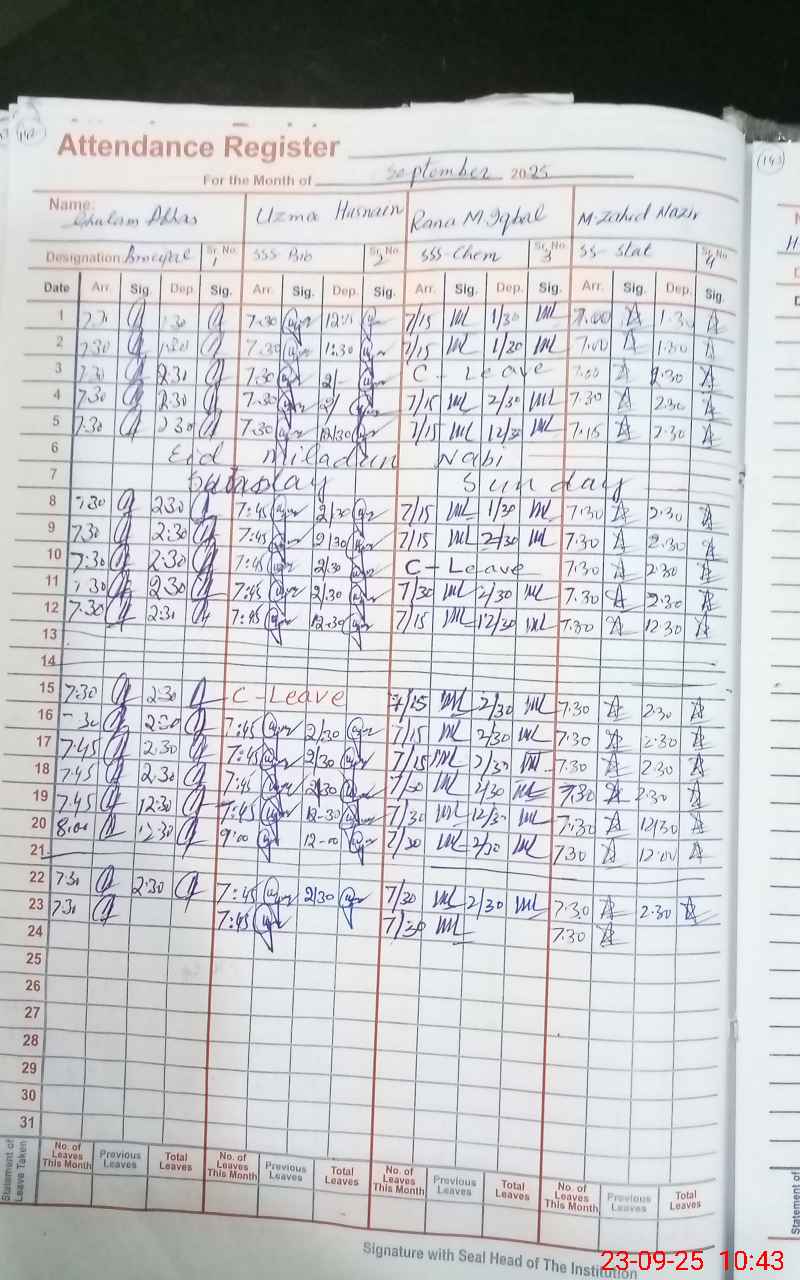 Attendance Register
For the Month of September 2025
Name: Ghulam Abbas Uzma Hasnain Rana M. Iqbal M. Zahid Nazir
Designation Sr. No. 1 SSS Bio Sr. No. 2 SSS-Chem Sr. No. 3 SS-Stat Sr. No. 4
Date Arr. Sig. Dep. Sig. Arr. Sig. Dep. Sig. Arr. Sig. Dep. Sig. Arr. Sig. Dep. Sig.
1 7.30 7/15 1/30 7.00 1.30
2 7.30 1.30 7.30 1:30 7/15 1/30 7.00 1.30
3 7.30 2.30 7.30 2/- C - Leave 7.00 2.30
4 7.30 2.30 7.30 2/ 7/15 2/30 7.30 2.30
5 7.30 2.30 7.30 12/30 7/15 12/30 7.15 2.30
6 Eid miladun Nabi
7 Sunday
8 7.30 2.30 7:45 2/30 7/15 1/30 7.30 2.30
9 7.30 2.30 7:45 2/30 7/15 2/30 7.30 2.30
10 7.30 2.30 7:45 2/30 C - Leave 7.30 2.30
11 7.30 2.30 7:45 2/30 7/30 2/30 7.30 2.30
12 7.30 2.30 7:45 12.30 7/15 12/30 7.30 12.30
13
14
15 7:30 2.30 C - Leave 7/15 2/30 7.30 2.30
16 2.30 7:45 2/30 7/15 2/30 7.30 2.30
17 7.45 2.30 7:45 2/30 7/15 2/30 7.30 2.30
18 7.45 2.30 7:45 2/30 7/30 2/30 7.30 2.30
19 7.45 12.30 7:45 12-30 7/30 12/30 7.30 12/30
20 8.00 12.30 9:00 12-00 7/30 2/30 7.30 12.00
21
22 7.30 2.30 7:45 2/30 7/30 2/30 7.30 2.30
23 7.30 7:45 7/30 7.30
24
25
26
27
28
29
30
31
Statement of Leave Taken No. of Leaves This Month Previous Leaves Total Leaves No. of Leaves This Month Previous Leaves Total Leaves No. of Leaves This Month Previous Leaves Total Leaves No. of Leaves This Month Previous Leaves Total Leaves
Signature with Seal Head of The Institution
23-09-25 10:43
(143)
Statement of